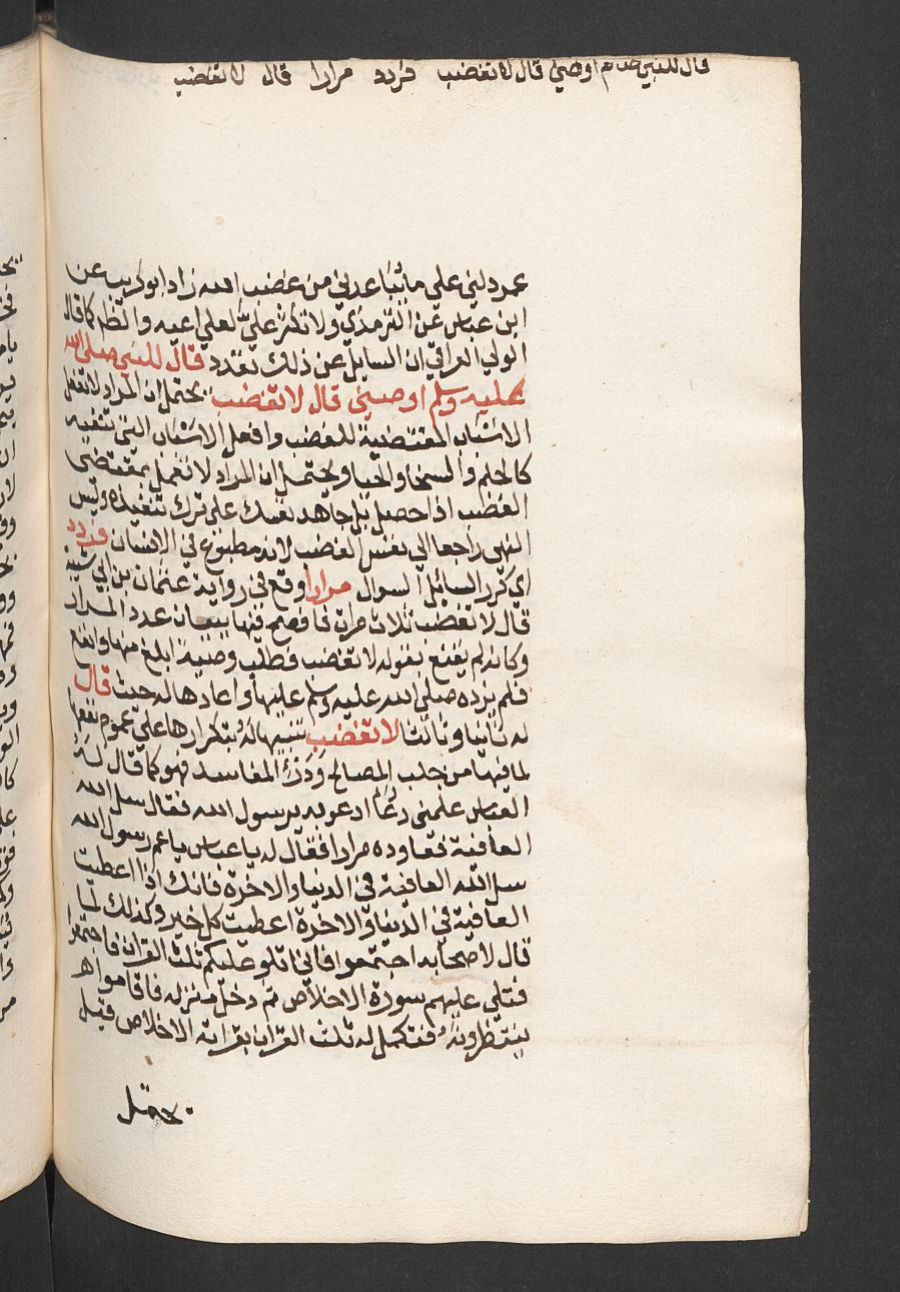 قال للنبي صلعم اوصني قال لا تغضب فردد مرارا قال لا تغضب
عمر دلني علي ما يباعدني من غضب الله زاد ابو كريب عن
ابن عباس عن الترمذي ولا تكثر علي لعلي اعيه والظ كما قال
الولي العراقي ان السايل عن ذلك تعدد قال للنبي صلي الله
عليه وسلم اوصيني قال لا تغضب يحتمل ان المراد لا تفعل
الاسباب المقتضية للغضب وافعل الاسباب التي تنفيه
كالحلم والسخا والحيا ويحتمل ان المراد لا تعمل بمقتضي
الغضب اذا حصل بل جاهد نفسك علي ترك تنفيذه وليس
النهي راجعا الي نفس الغضب لانه مطبوع في الانسان فردد
اي كرر السايل السوال مرارا وقع في رواية عثمان بن ابي شيبة
قال لا تغضب ثلاث مرات فافصح فيها ببيان عدد المرار
وكانه لم يقنع بقوله لا تغضب فطلب وصية ابلغ منها وانفع
فلم يزده صلي الله عليه وسلم عليها واعادها له حيث قال
له ثانيا وثالثا لا تغضب تنبيها له بتكرارها علي عموم نفعها
لما فيها من جلب المصالح ودرء المفاسد فهو كما قال له
العباس علمني دعاء ادعو به يرسول الله فقال سل الله
العافية فعاوده مرارا فقال له يا عباس يا عم رسول الله
سل الله العافية في الدنيا والاخرة فانك اذا اعطيت
العافية في الدنيا والاخرة اعطيت كل خير وكذلك لما
قال لاصحابه اجتمعوا فاني اتلو عليكم ثلث القران فاجتمعوا
فتلي عليهم سورة الاخلاص ثم دخل منزله فاقاموا
ينتظرونه فتكمل له ثلث القران بقراته الاخلاص فقيل
يحمل